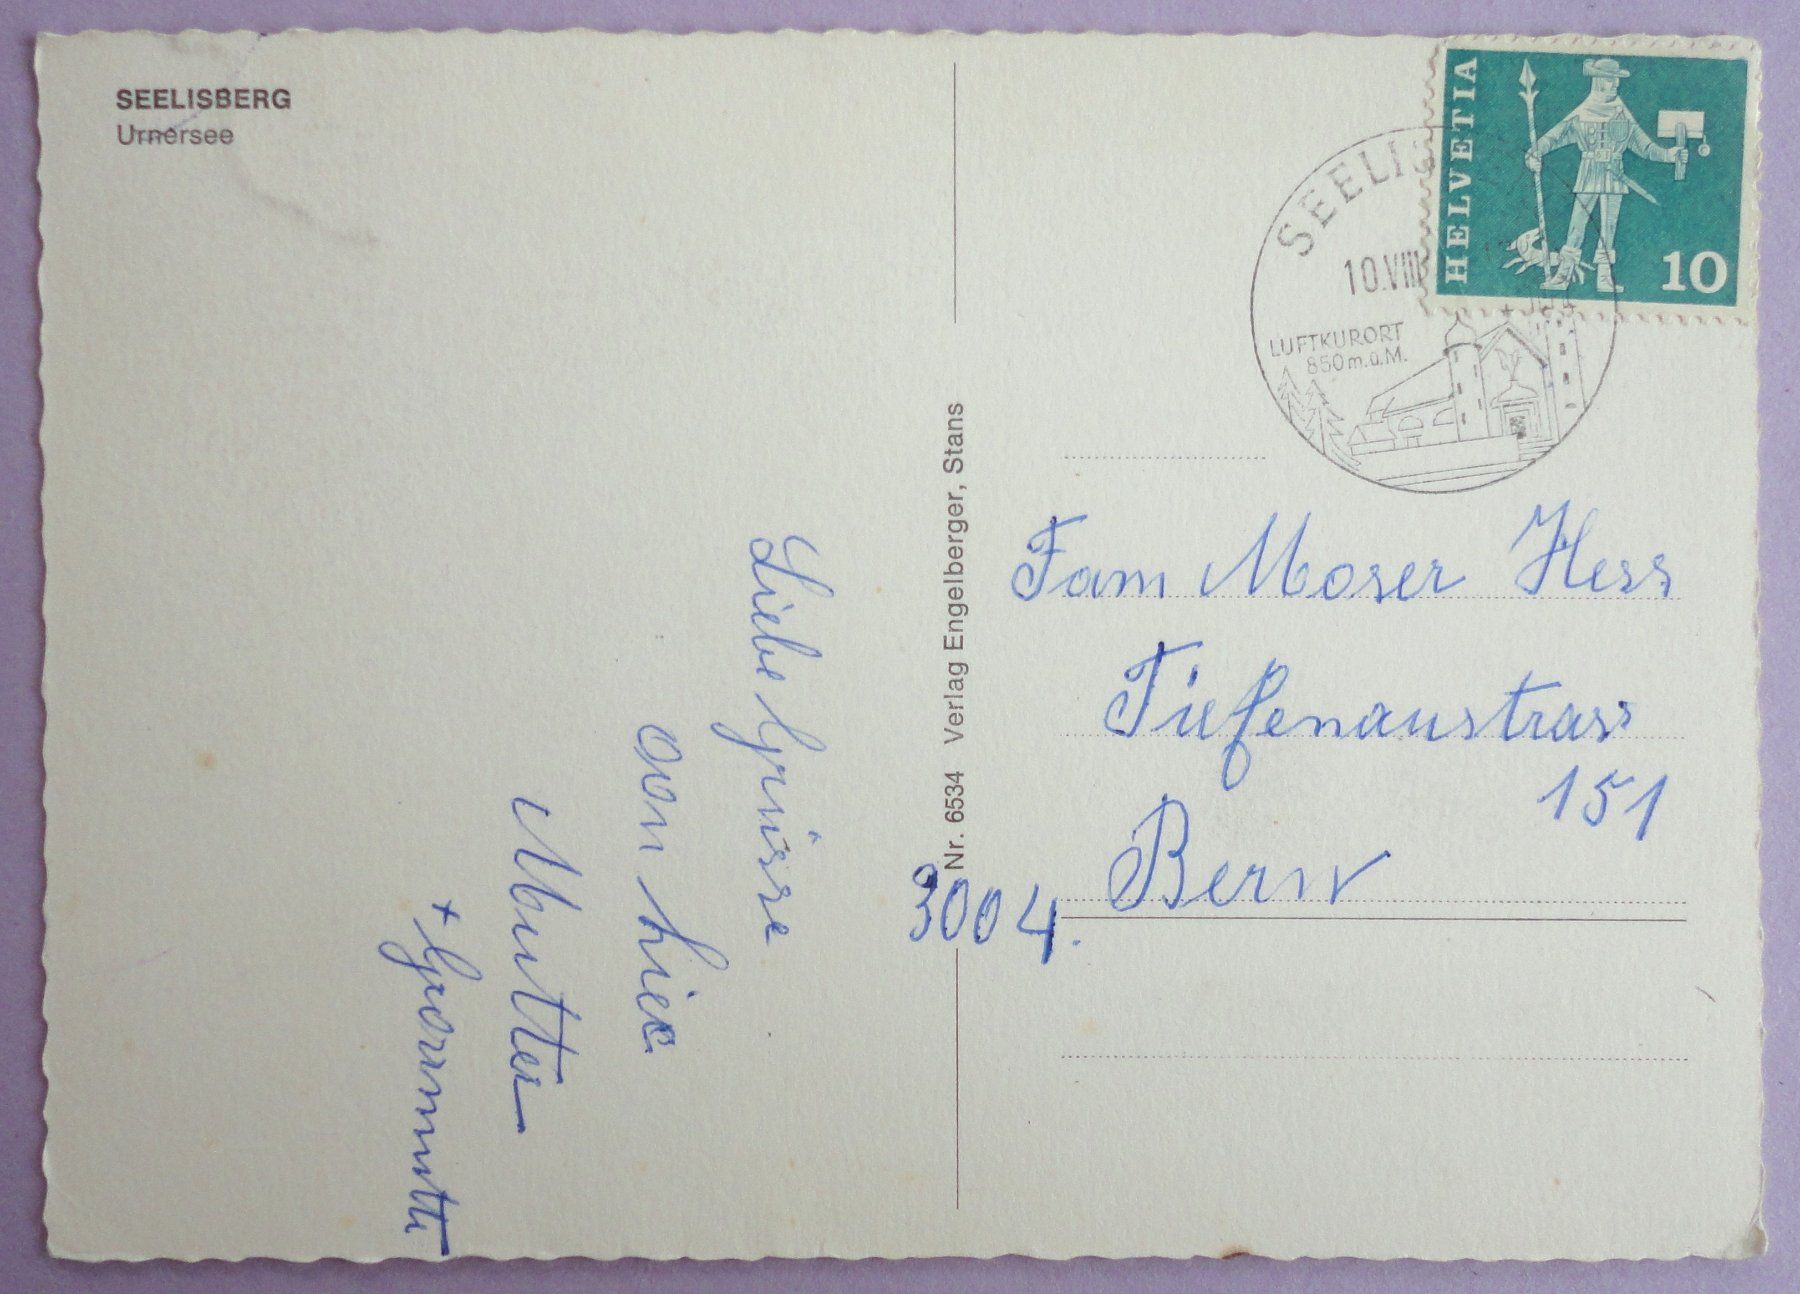 SEELISBERG
Urnersee
Liebe Grüsse
von hier
Mutter
+ Grosmutti
Nr. 6534 Verlag Engelberger, Stans
HELVETIA
10
10.VIII
LUFTKURORT
850 m.ü.M.
Fam Moser Hess
Tiefenaustrass
151
3004. Bern